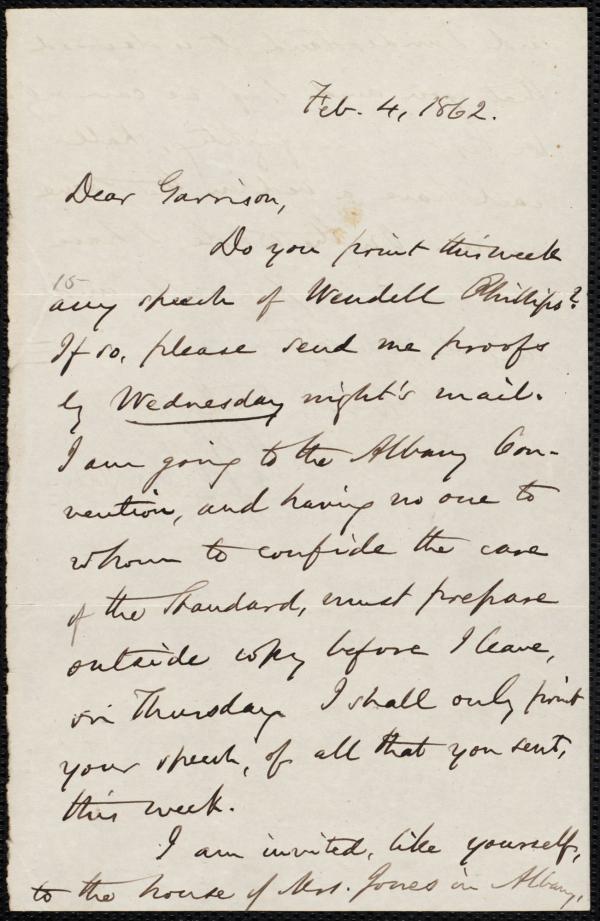 Feb. 4, 1862.
Dear Garrison,
Do you print this week
15
any speech of Wendell Phillips?
If so, please send me proofs
by Wednesday night's mail.
I am going to the Albany Con-
vention, and having no one to
whom to confide the care
of the Standard, must prepare
outside copy before I leave,
on Thursday. I shall only print
your speech, of all that you sent,
this week.
I am invited, like yourself,
to the house of Mrs. Jones in Albany,